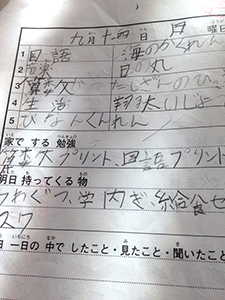 九月十四日 日 曜日
1 国語 海のかくれん
2 音楽 日のれ
3 算数 たしざんのひ
4 生活 翔太いしょ
5 ひなんくんれん
家でする勉強
算数プリント、国語プリント
明日持ってくる物
うわぐつ、学内ぎ、給食セ
スク
日一日の中でしたこと・見たこと・聞いたこと